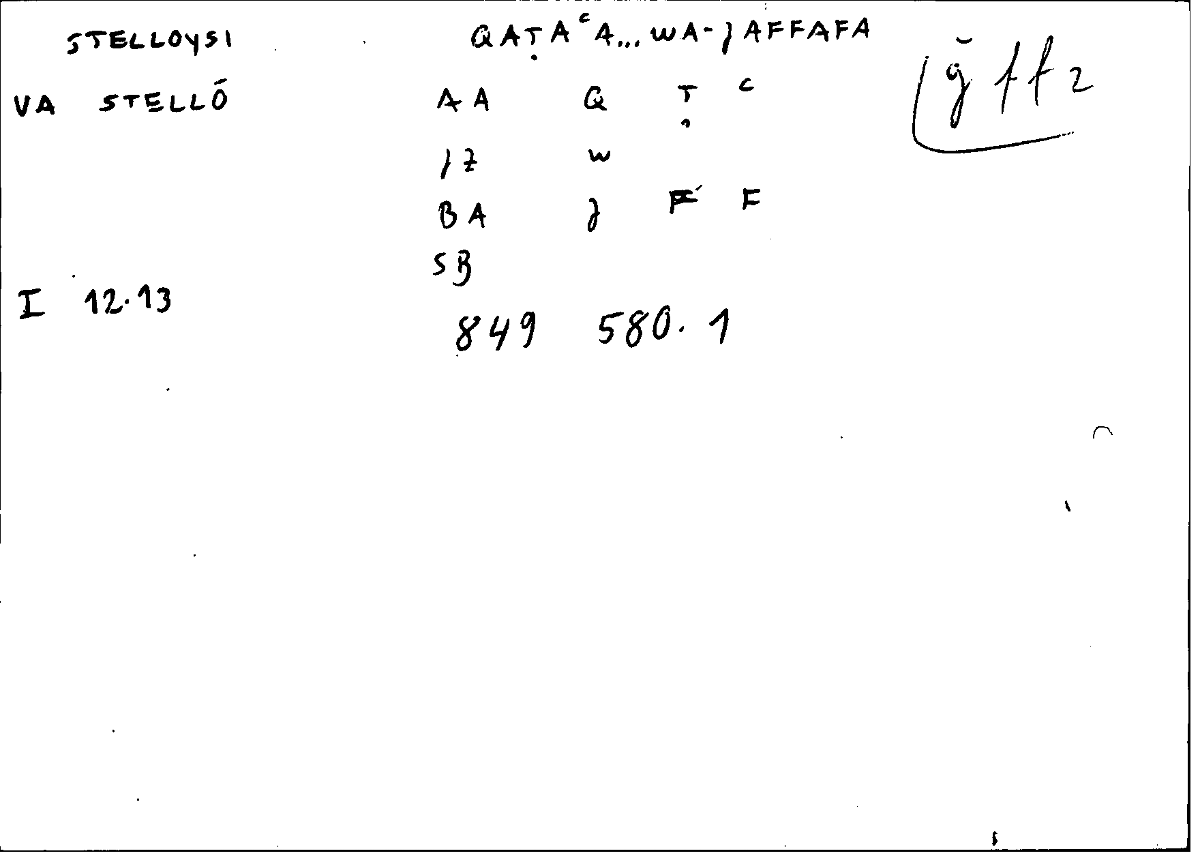 STELLOYSI QAṬAᶜA... WA-JAFFAFA
VA STELLŌ AA Q Ṭ ᶜ
W
BA J F F
SB
I 12.13
849 580.1
ǧff2